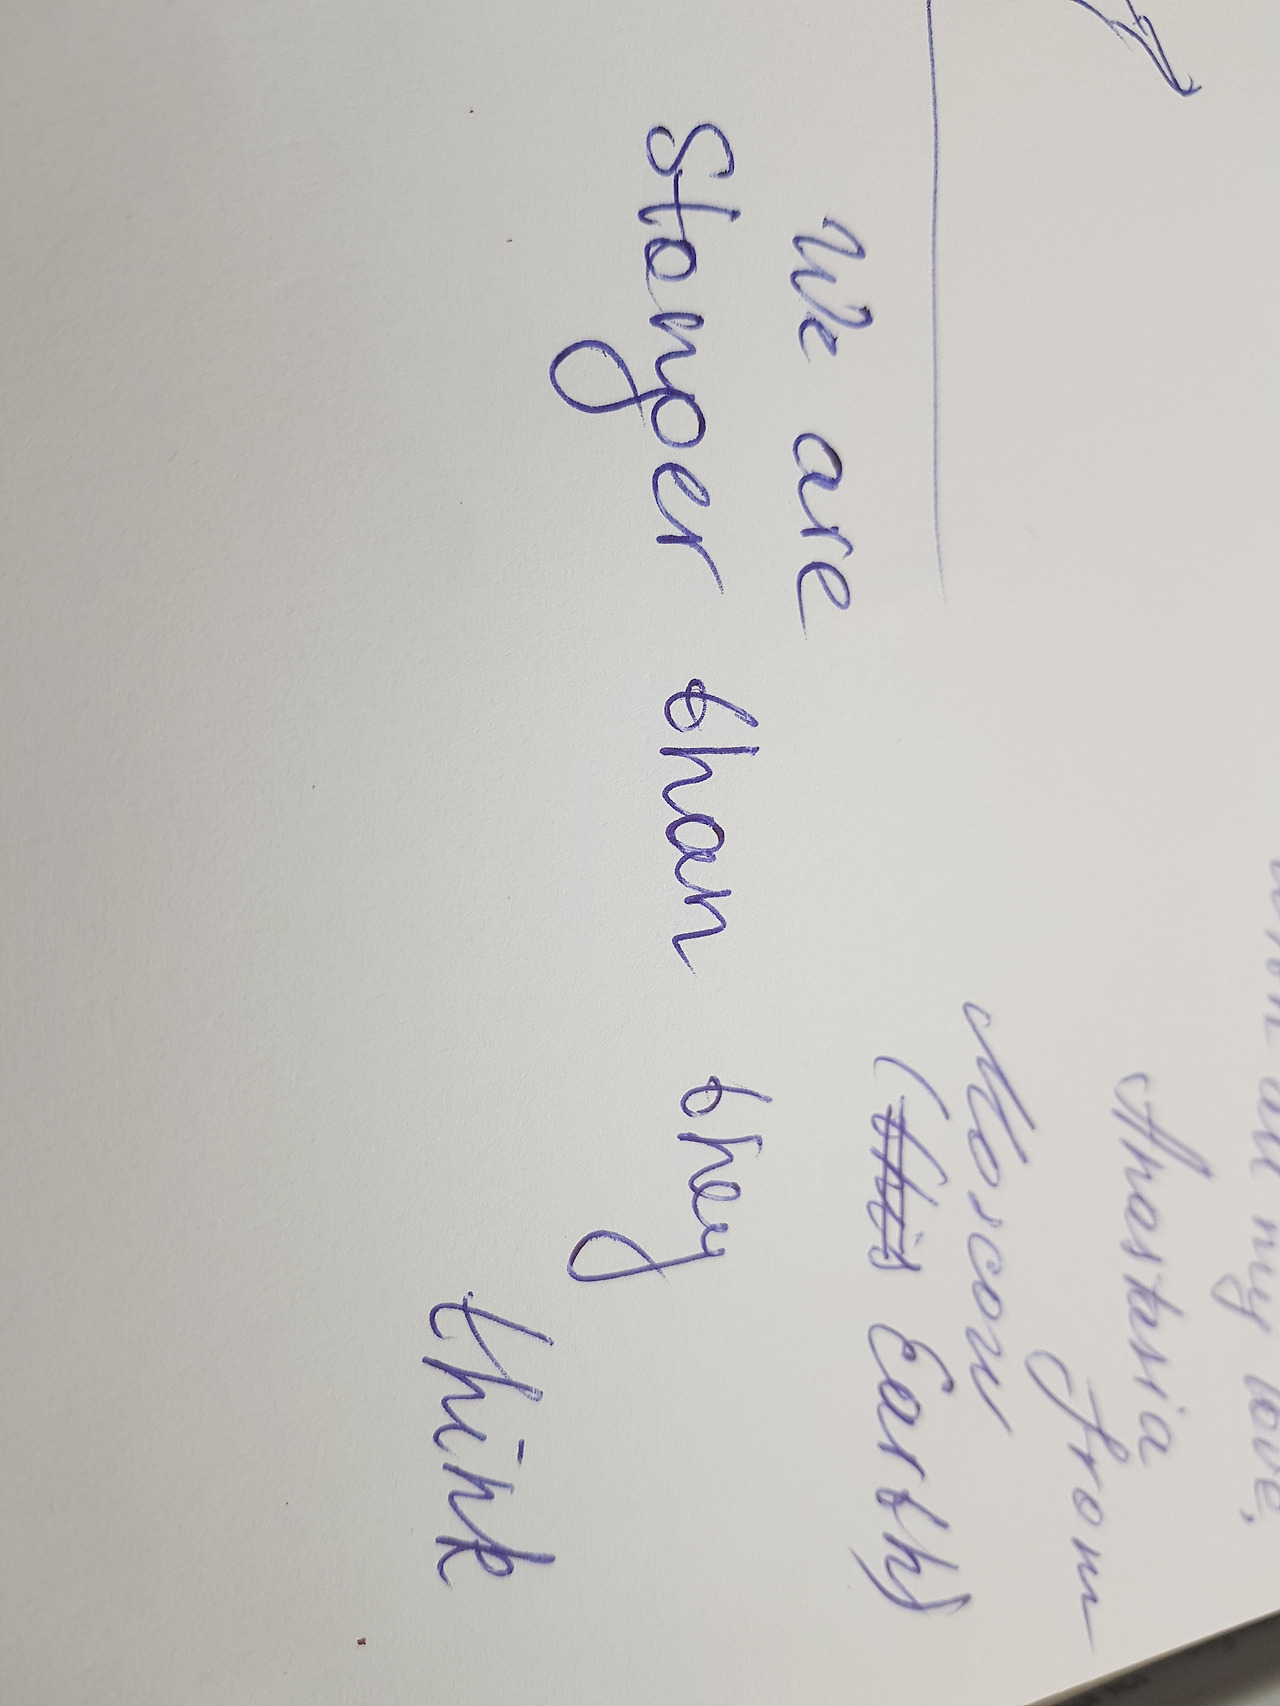 with all my love,
Anastasia
from
Moscow
(this Earth)
We are
Stonger than they
think